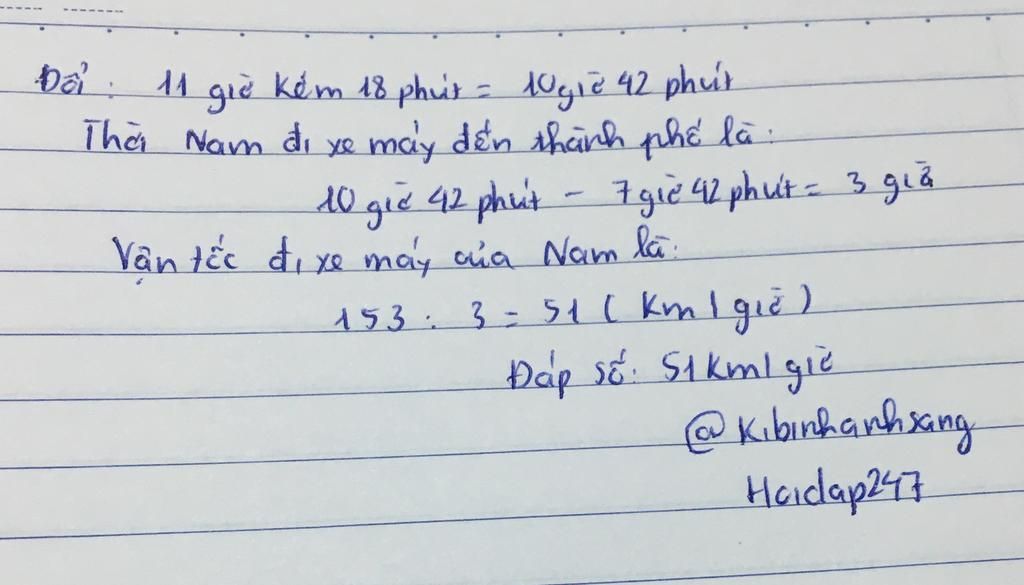 Đổi: 11 giờ kém 18 phút = 10 giờ 42 phút
Thời Nam đi xe máy đến thành phố là:
10 giờ 42 phút - 7 giờ 42 phút = 3 giờ
Vận tốc đi xe máy của Nam là:
153 : 3 = 51 ( Km / giờ )
Đáp số: 51 Km/ giờ
@Kibinhanhsang
Hoidap247